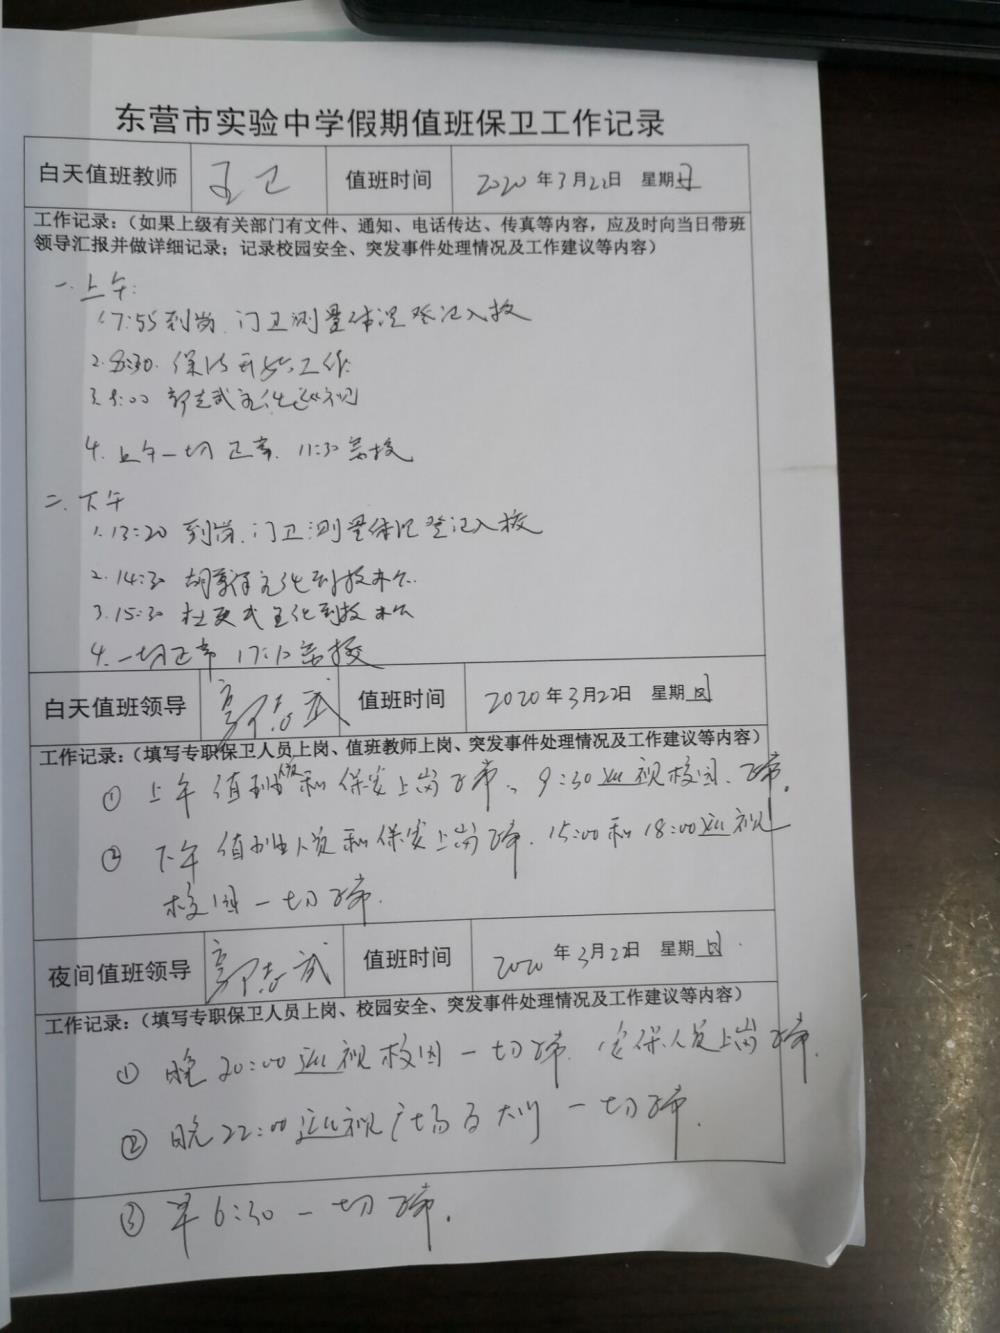 东营市实验中学假期值班保卫工作记录
白天值班教师 王卫 值班时间 2020年3月22日 星期日
工作记录：（如果上级有关部门有文件、通知、电话传达、传真等内容，应及时向当日带班
领导汇报并做详细记录；记录校园安全、突发事件处理情况及工作建议等内容）
一.上午:
1.7:55到岗.门卫测量体温登记入校
2.8:30.保洁开始工作
3.9:00 郭志武主任巡视
4.上午一切正常.11:30离校
二.下午
1.13:20 到岗.门卫测量体温登记入校
2.14:30 胡 主任到校办公.
3.15:30 杜 武主任到校办公
4.一切正常 17:10离校
白天值班领导 郭志武 值班时间 2020年3月22日 星期日
工作记录：（填写专职保卫人员上岗、值班教师上岗、突发事件处理情况及工作建议等内容）
① 上午值班 和保安上岗正常、9:30巡视校园、正常.
② 下午值班人员和保安上岗正常.15:00和18:00巡视
校园一切正常.
夜间值班领导 郭志武 值班时间 2020年3月22日 星期日
工作记录：（填写专职保卫人员上岗、校园安全、突发事件处理情况及工作建议等内容）
① 晚20:00巡视校园一切正常.安保人员上岗正常.
② 晚22:00巡视广场及大门一切正常.
③ 早6:30一切正常.